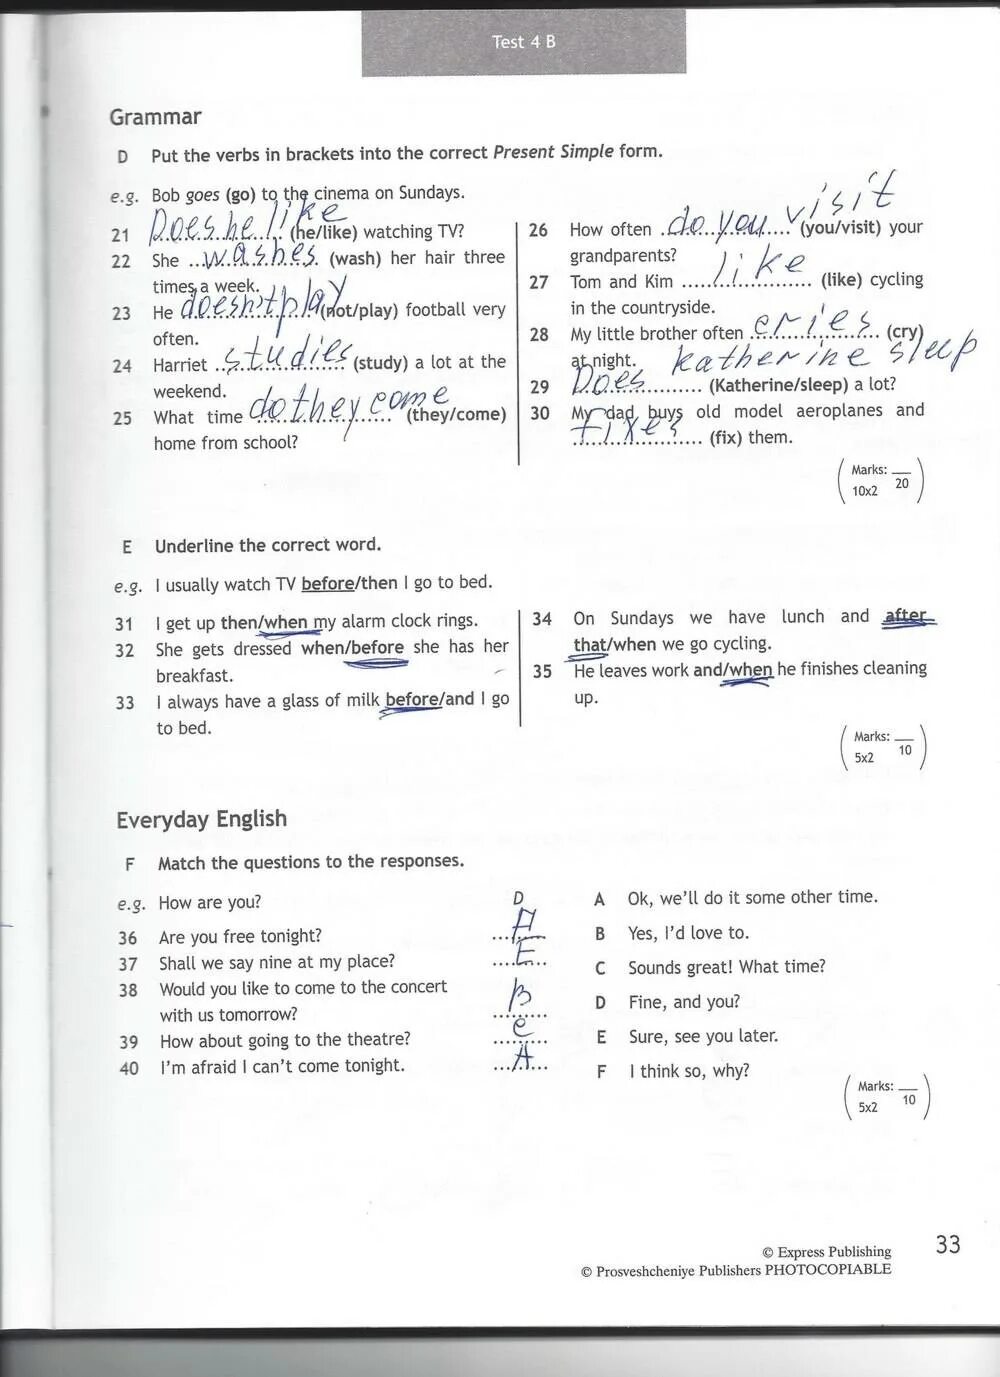 Test 4 B
Grammar
D Put the verbs in brackets into the correct Present Simple form.
e.g. Bob goes (go) to the cinema on Sundays.
21 Does he like (he/like) watching TV?
22 She washes (wash) her hair three
times a week.
23 He doesn't play (not/play) football very
often.
24 Harriet studies (study) a lot at the
weekend.
25 What time do they come (they/come)
home from school?
26 How often do you visit (you/visit) your
grandparents?
27 Tom and Kim like (like) cycling
in the countryside.
28 My little brother often cries (cry)
at night.
29 Does katherine sleep (Katherine/sleep) a lot?
30 My dad buys old model aeroplanes and
fixes (fix) them.
(Marks: __
10x2 20)
E Underline the correct word.
e.g. I usually watch TV before/then I go to bed.
31 I get up then/when my alarm clock rings.
32 She gets dressed when/before she has her
breakfast.
33 I always have a glass of milk before/and I go
to bed.
34 On Sundays we have lunch and after
that/when we go cycling.
35 He leaves work and/when he finishes cleaning
up.
(Marks: __
5x2 10)
Everyday English
F Match the questions to the responses.
e.g. How are you? D
36 Are you free tonight? F
37 Shall we say nine at my place? E
38 Would you like to come to the concert
with us tomorrow? B
39 How about going to the theatre? C
40 I'm afraid I can't come tonight. A
A Ok, we'll do it some other time.
B Yes, I'd love to.
C Sounds great! What time?
D Fine, and you?
E Sure, see you later.
F I think so, why?
(Marks: __
5x2 10)
© Express Publishing
© Prosveshcheniye Publishers PHOTOCOPIABLE
33